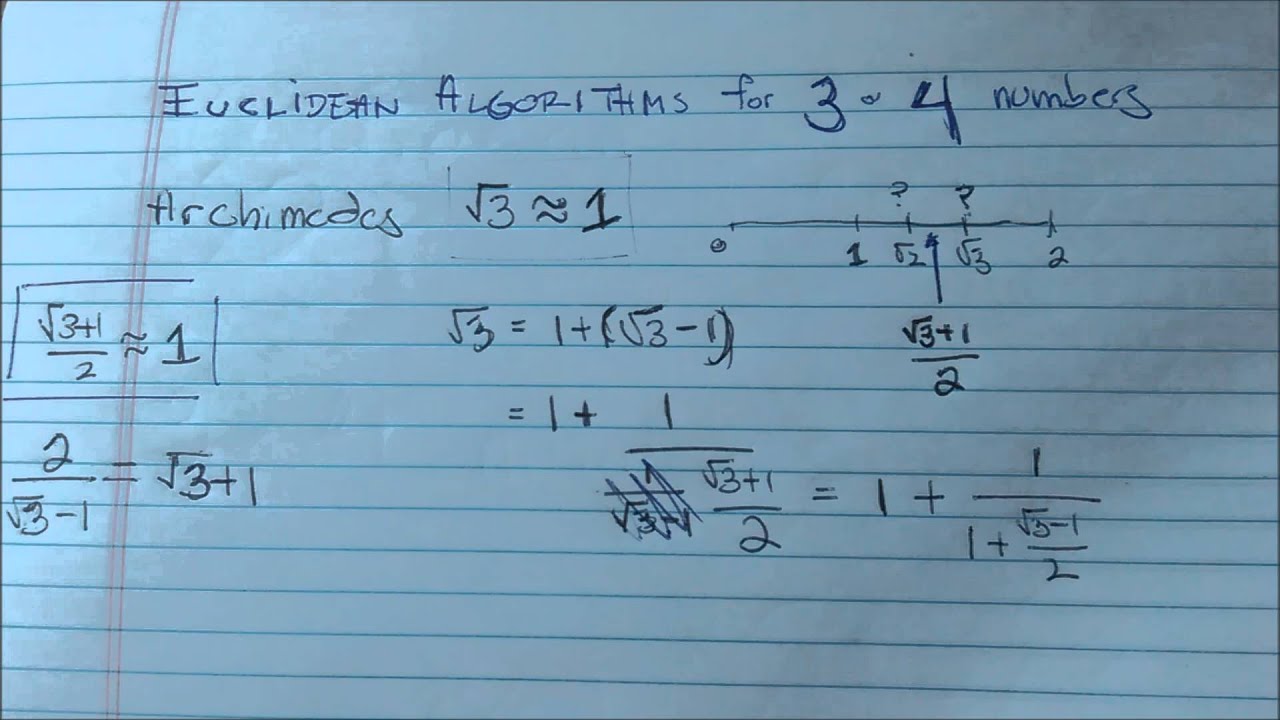 EUCLIDEAN ALGORITHMS for 3 or 4 numbers
Archimedes √3 ≈ 1
? ?
0 1 √2 √3 2
(√3+1)/2 ≈ 1
√3 = 1 + (√3 − 1)
(√3+1)/2
= 1 + 1/((√3+1)/2) = 1 + 1/(1 + (√3−1)/2)
2/(√3−1) = √3+1